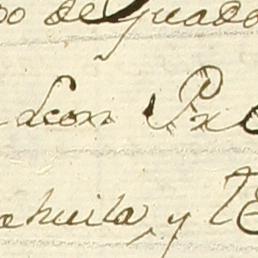 po de Guada
Leon Pro
ahuila y Te